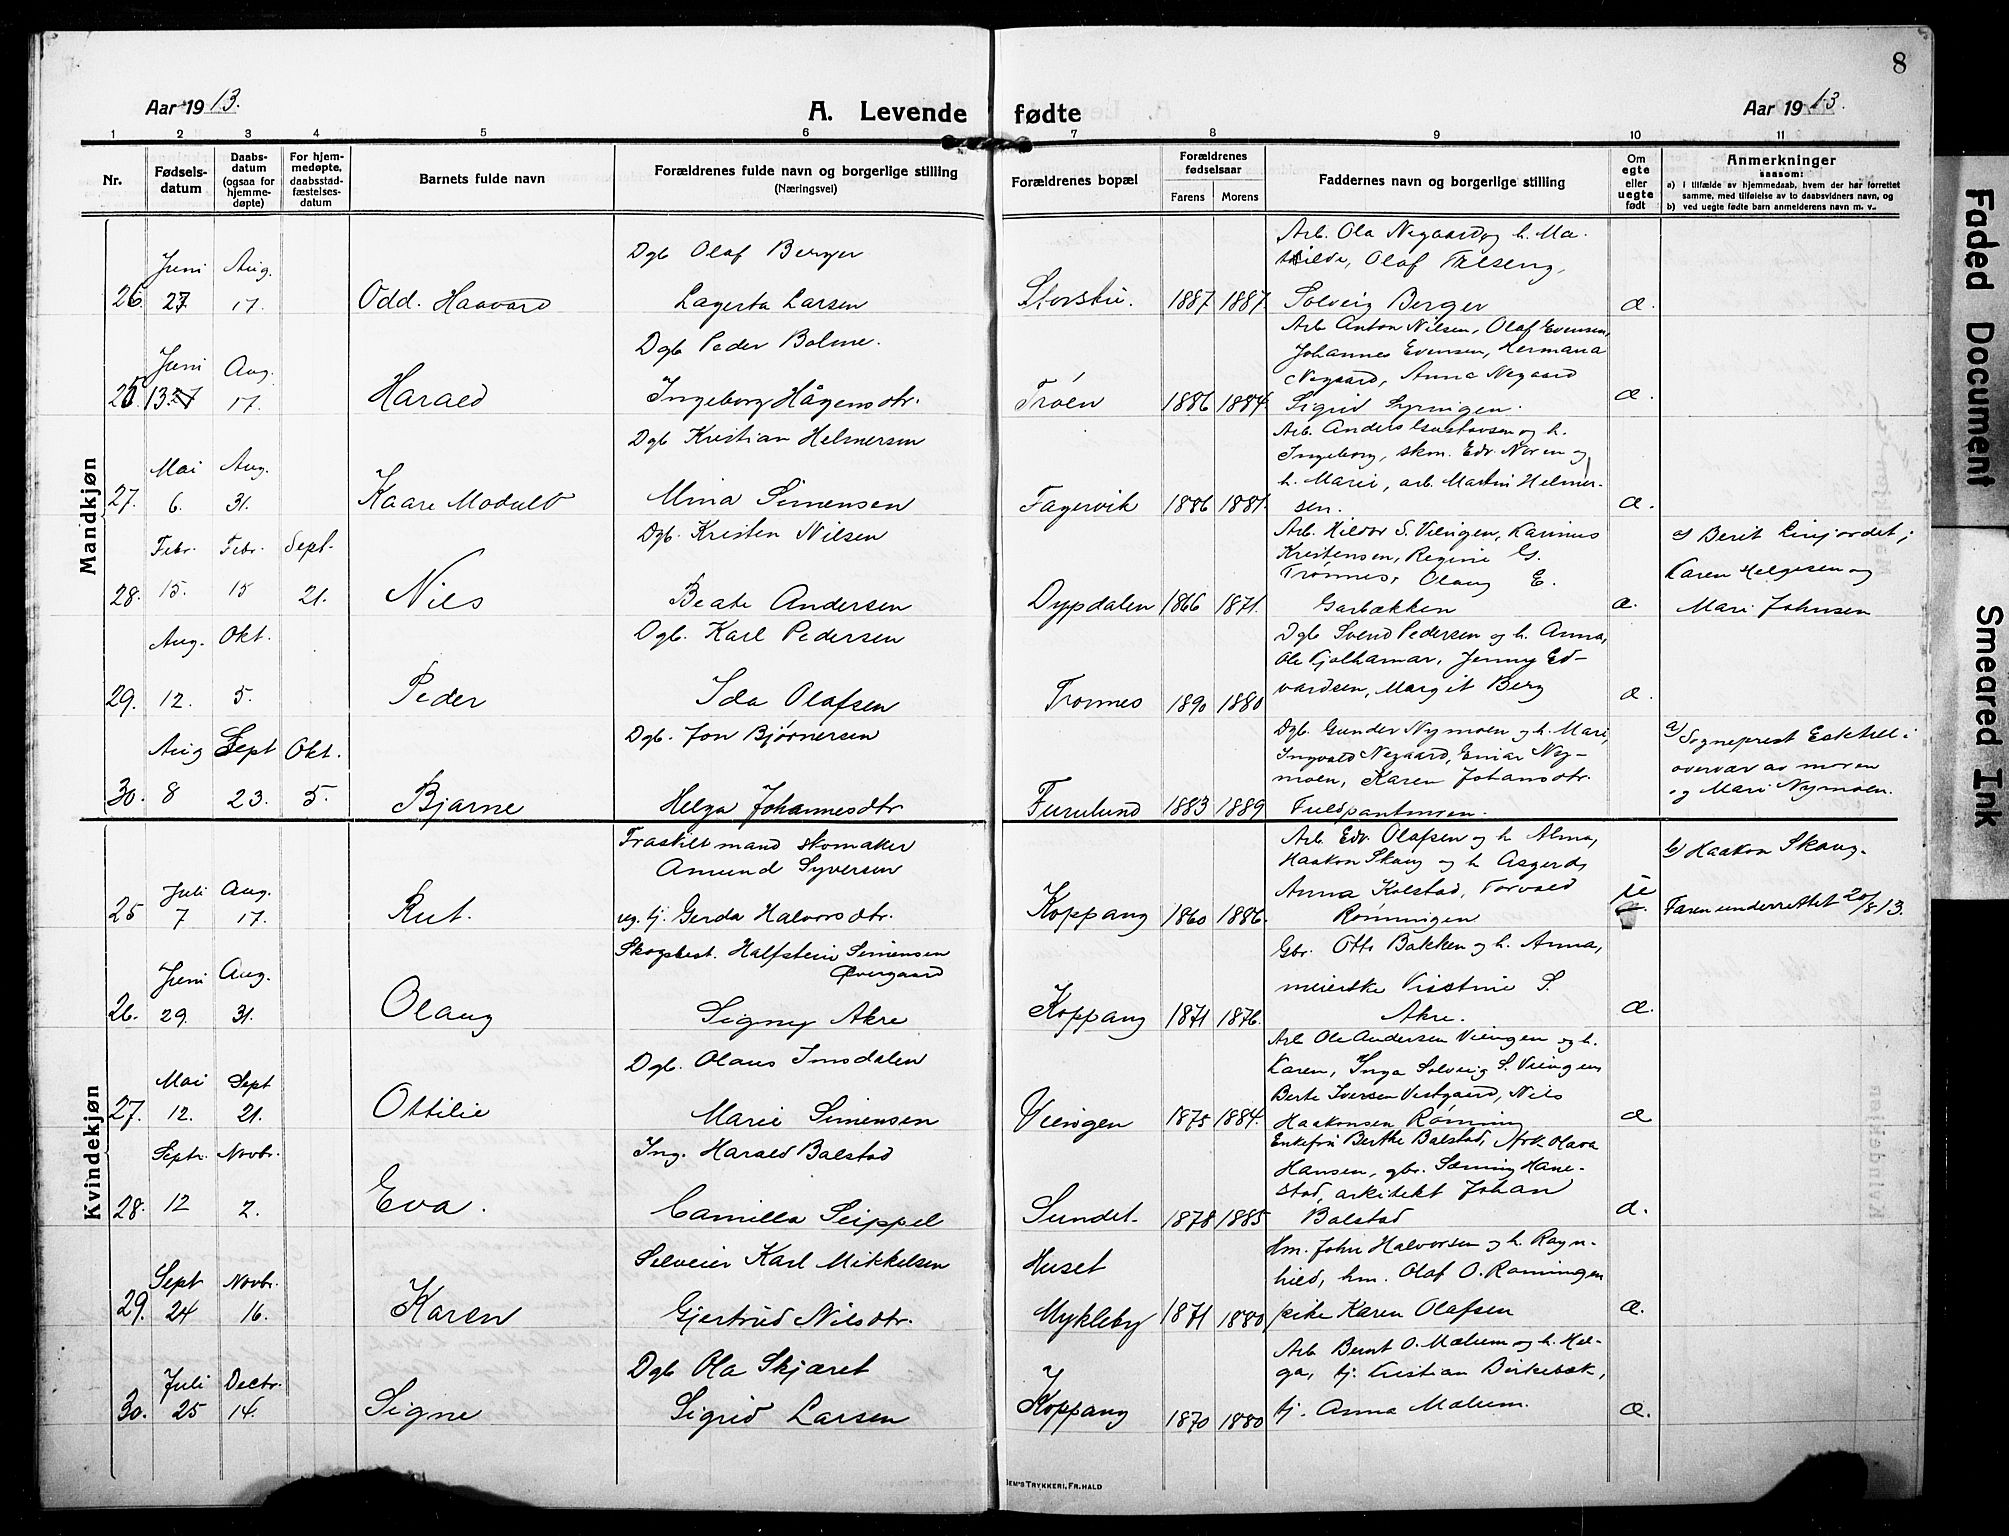 8
Aar 1913.
A. Levende fødte
Aar 1913.
1 2 3 4 5 6 7 8 9 10 11
Nr.
Fødselsdatum
Daabsdatum (ogsaa for hjemmedøpte)
For hjemmedøpte, daabsstadfæstelsesdatum
Barnets fulde navn
Forældrenes fulde navn og borgerlige stilling (Næringsvei)
Forældrenes bopæl
Forældrenes fødselsaar
Farens Morens
Faddernes navn og borgerlige stilling
Om egte eller uegte født
Anmerkninger
saasom:
a) i tilfælde av hjemmedaab, hvem der har forrettet samme, med tilføielse av to daabsvidners navn, og
b) ved uegte fødte barn anmelderens navn m. v.
Mandkjøn
Juni Aug. Dgb Olaf Berger Arb. Ola Negaard og h. Ma-
thilde, Olaf
26. 27. 17. Odd. Haavard Lagerta Larsen Storsku. 1887. 1887. Solveig Berger æ.
Juni Aug. Dgb Peder Bolme. Arb Anton Nilsen, Olaf Evensen,
Johannes Evensen, Hermana
Negaard, Anna Negaard
25 13. 17. Harald Ingeborg Hågensdtr. Trøen 1886 1884. Sigrid æ.
Mai Aug. Dgb Kristian Helmersen Arb. Anders Gustavsen og h.
Ingeborg, skm. Edv. Noren og
h. Marie, arb. Martin Helmer-
27. 6. 31. Kaare Modulv Mina Simensen Fagervik 1886 1881. sen. æ.
Febr. Febr. Sept. Dgb. Kristen Nilsen Arb. Hildor S. Vieingen, Karinus
Kristensen, Regine G.
Trønnes, Olaug E.
a) Beret
Karen Helgesen og
28. 15. 15 21. Nils Beate Andersen Dypdalen 1866 1871. Garbækken æ. Mari Johnsen
Aug. Okt. Dgb. Karl Pedersen Dgb Svend Pedersen og h. Anna,
Ole Kjølhamar, Jenny Ed-
29. 12. 5. Peder Ida Olafsen Trønnes 1890 1880 vardsen, Margit Berg æ.
Aug Sept Okt. Dgb. Jon Bjørnersen Dgb. Gunder Nymoen og h. Mari,
Ingvald Negaard, Einar Ny-
moen, Karen Johansdtr.
a) Sogneprest i
overvær av moren
og Mari Nymoen.
30. 8 23. 5. Bjarne Helga Johannesdtr Furulund 1883 1889
Kvindekjøn
Fraskilt mand skomaker
Amund Syversen
Arb. Edv. Olafsen og h. Alma,
Haakon Skaug og h. Asgerd,
b) Haakon Skaug.
Juli Aug. Anna Kolstad, Torvald ue
25 7 17. Rut. ug. tj. Gerda Halvorsdtr. Koppang 1860 1886. Rønningen Faren underrettet 20/8 13.
Skogbest. Halfstein Simensen
Øvergaard
Gbr. Otto Bakken og h. Anna,
Juni Aug. meierske Kristine S.
26. 29. 31. Olaug Signy Akre Koppang 1871 1876. Akre. æ.
Dgb. Olaus Imsdalen Arb Ole Andersen Vieingen og h.
Karen, Inga Solveig S. Vieingen
Mai Sept Berte Iversen Vestgaard, Nils
27. 12. 21. Ottilie Marie Simensen Vieingen 1875 1884. Haakonsen Rønning æ
Septr. Novbr. Ing. Harald Balstad Enkefru Berthe Balstad, frk. Olava
Hansen, gbr. Sæming Hane-
stad, arkitekt Johan
28. 12 2. Eva. Camilla Seippel Sundet. 1878 1885 Balstad æ.
Selveier Karl Mikkelsen Huset Hm. John Halvorsen og h. Ragn-
Sept Novbr. hild, hm. Olaf O. Ramingen
29. 24 16. Karen Gjertrud Nilsdtr. Mykleby 1871 1880 pike Karen Olafsen æ.
Dgb Ola Skjæret Arb Bernt O. Mælum og h. Hel-
Juli Decbr. ga, tj. Kristian Birkebæk,
30. 25 14. Signe Sigrid Larsen Koppang 1870 1880 tj. Anna Mælum. æ.
EM'S TRYKKERI, FR. HALD
Faded Document
Smeared Ink